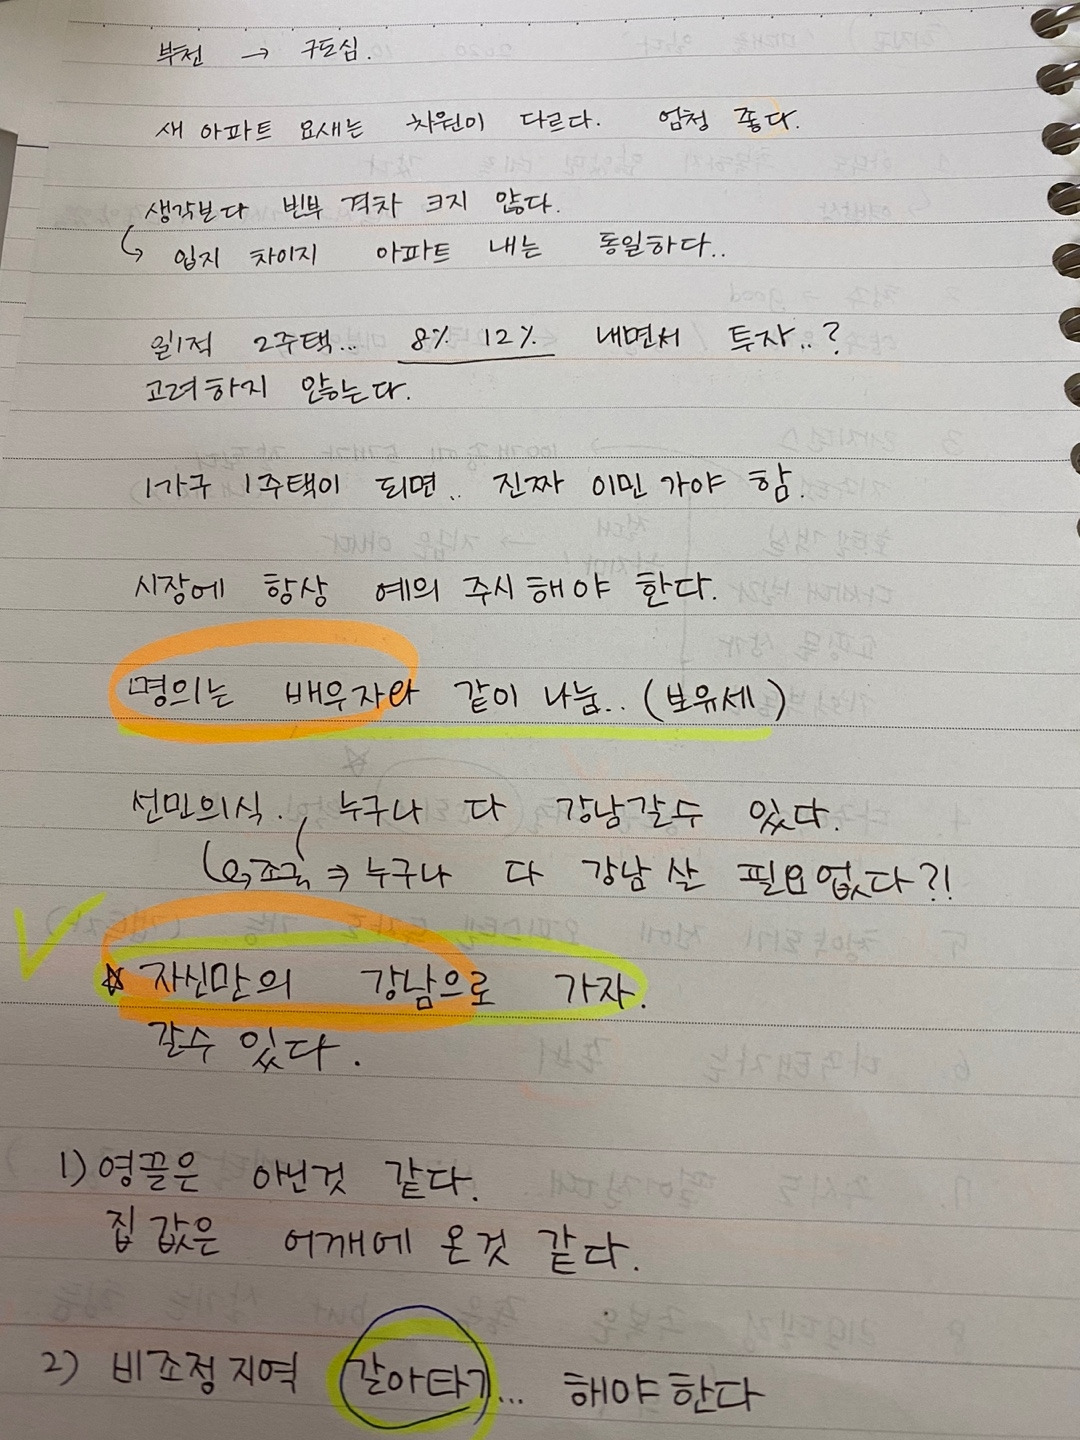 부천 → 구도심.
새 아파트 요새는 차원이 다르다. 엄청 좋다.
생각보다 빈부 격차 크지 않다.
↳ 입지 차이지 아파트 내는 동일하다..
일시적 2주택.. 8% 12% 내면서 투자..?
고려하지 않는다.
1가구 1주택이 되면.. 진짜 이민 가야 함.
시장에 항상 예의 주시해야 한다.
명의는 배우자와 같이 나눔.. (보유세)
선민의식. 누구나 다 강남갈수 있다.
조국 ⇒ 누구나 다 강남 살 필요없다?!
☆ 자신만의 강남으로 가자.
갈수 있다.
1) 영끌은 아닌것 같다.
집 값은 어깨에 온것 같다.
2) 비조정지역 갈아타기... 해야한다